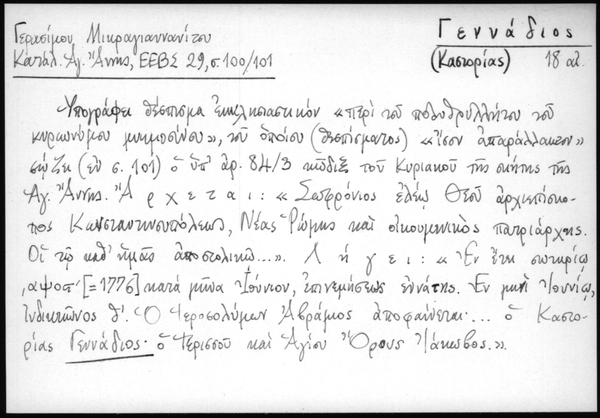 Γερασίμου Μικραγιαννανίτου
Κατάλ. Ἁγ. Ἄννης, ΕΕΒΣ 29, σ. 100/101
Γεννάδιος
(Καστορίας) 18 αἰ.
Ὑπογράφει θέσπισμα ἐκκλησιαστικόν «περὶ τοῦ πολυθρυλλήτου τοῦ
κυρωνύμου μνημοσύνου», τοῦ ὁποίου (θεσπίσματος) «ἴσον ἀπαράλλακτον»
σῴζει (ἐν σ. 101) ὁ ὑπ' ἀρ. 84/3 κῶδιξ τοῦ Κυριακοῦ τῆς σκήτης τῆς
Ἁγ. Ἄννης. Ἄρχεται: «Σωφρόνιος ἐλέῳ Θεοῦ ἀρχιεπίσκο-
πος Κωνσταντινουπόλεως, Νέας Ῥώμης καὶ οἰκουμενικὸς πατριάρχης.
Οἱ τῷ καθ' ἡμᾶς ἀποστολικῷ...». Λήγει: «Ἐν ἔτει σωτηρίῳ
͵αψοστ' [= 1776] κατὰ μῆνα Ἰούνιον, ἐπινεμήσεως ἐννάτης. Ἐν μηνὶ Ἰουνίῳ,
Ἰνδικτιῶνος θ'. Ὁ Ἱεροσολύμων Ἀβράμιος ἀποφαίνεται... ὁ Καστο-
ρίας Γεννάδιος· ὁ Ἱερισσοῦ καὶ Ἁγίου Ὄρους Ἰάκωβος.».